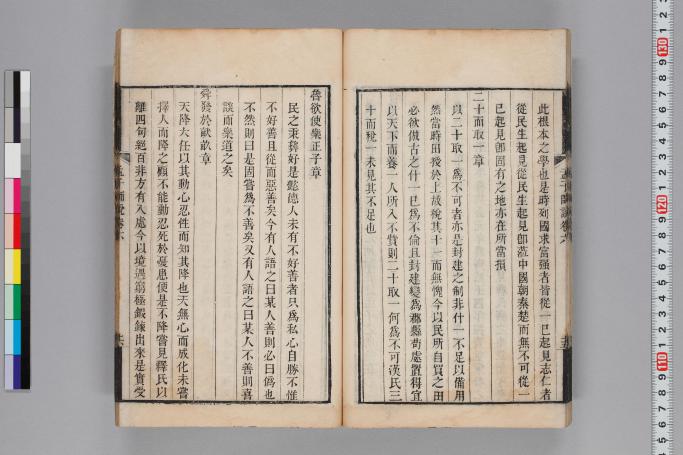 此根本之學也是時列國求富强者皆從一已起見志仁者
從民生起見從民生起見卽蒞中國朝秦楚而無不可從一
已起見卽固有之地亦在所當損
二十而取一章
以二十取一爲不可者亦是封建之制非什一不足以備用
然當時田授於上故稅其十一而無愧今以民所自買之田
必欲倣古之什一已爲不倫且封建變爲郡縣苟處置得宜
以天下而養一人所入不貲則二十取一何爲不可漢氏三
十而稅一未見其不足也
魯欲使樂正子章
民之秉彝好是懿德人未有不好善者只爲私心自勝不惟
不好善且從而惡善矣今有人語之曰某人善則必曰僞也
不然則曰是固嘗爲不善矣又有人語之曰某人不善則喜
談而樂道之矣
舜發於畎畝章
天降大任以其動心忍性而知其降也天無心而成化未嘗
擇人而降之顧不能動忍死於憂患便是不降嘗見釋氏以
離四句絕百非方有入處今以境遇窮極鍛鍊出來是實受
孟子師說卷六